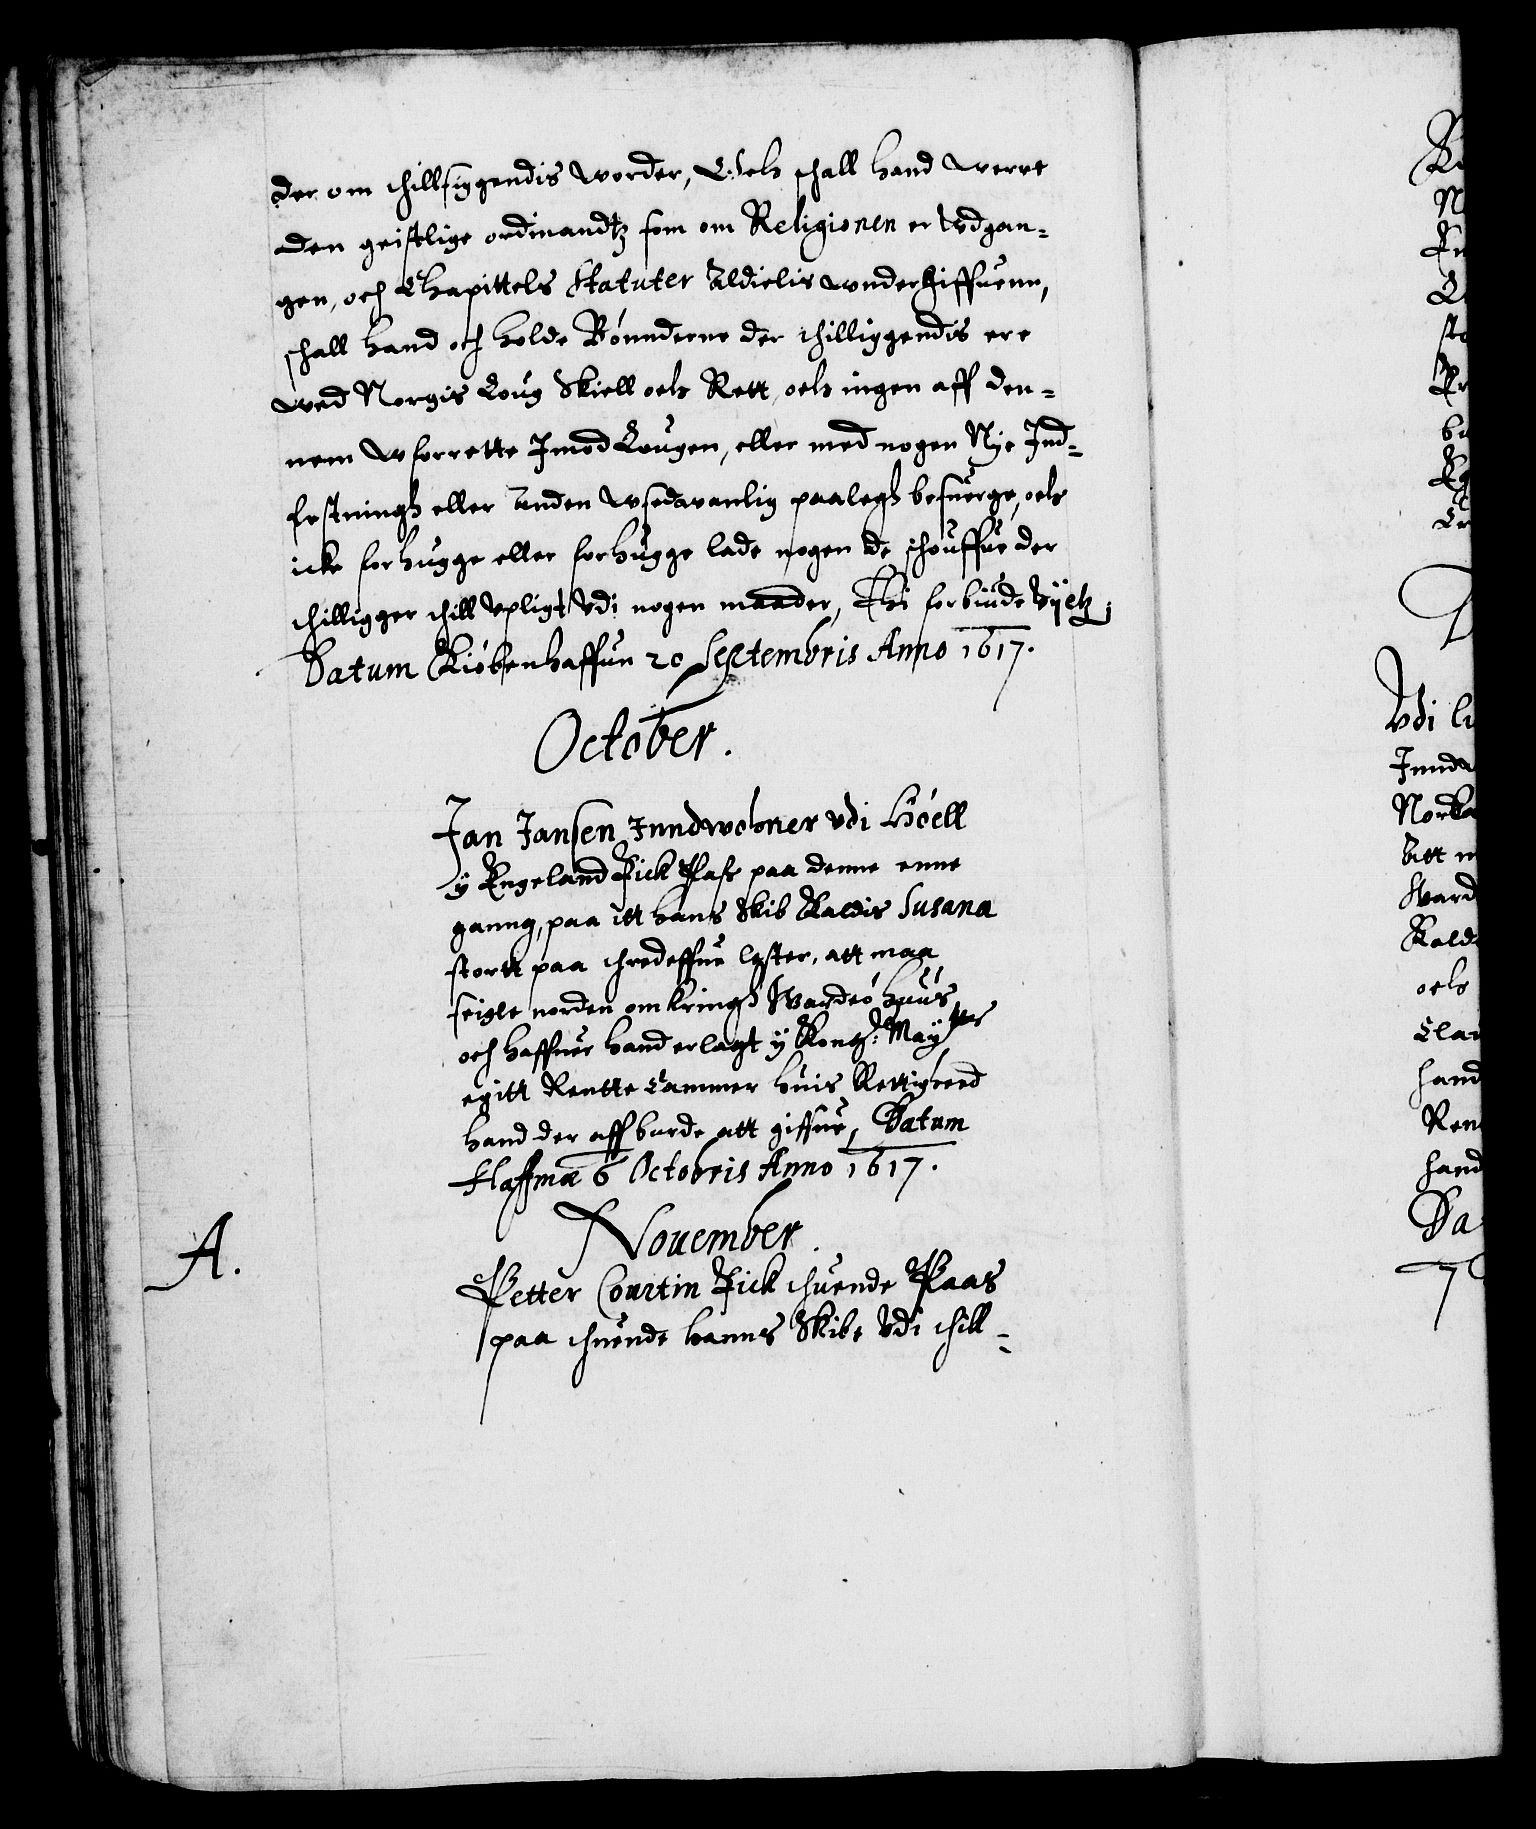 der om thillsiggendis worder, Och schall hand werre
den geistlige ordinandtz som om Religionen er Vdgan-
gen, och Chapittels Statuter Aldielis wnderhiffuenn,
schall hand och holde Bønnderne der thilliggendis ere
wed Norgis Loug Skiell och Rett, och ingen aff den-
nem wforrette Imod Lougen, eller med nogen Nye Ind-
festningh eller Anden wsedwanlig paalegh besuerge, och
icke forhugge eller forhugge lade nogen de schouffue der
thilligger thill Vpligt Vdi nogen maader, Thi forbiude Vij etz.
Datum Kiøbenhaffun 20 Septembris Anno 1617.
October.
Jan Jansen Inndwohner vdi Høell
ÿ Engeland Fick Pass paa denne enne
ganng, paa itt hans Skib Kaldis Susana
stortt paa thredeffue lester, att maa
seigle norden omkringh Wardøhuus
och haffuer hand erlagt ÿ Kong: Maytts
egitt Rentte Cammer huis Rettigheed
hand der aff burde att giffue, Datum
Haffniæ 6 Octobris Anno 1617.
November.
A.
Petter Courtin Fick thuende Paas
paa thuende hanns Skibe Vdi thill-